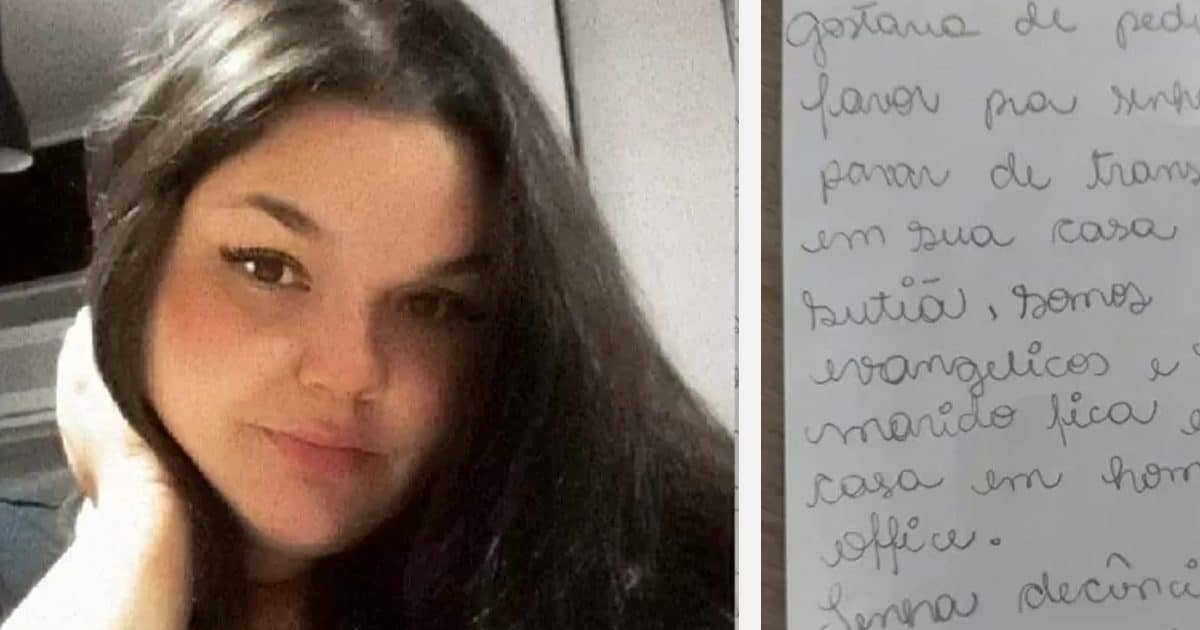 gostaria de ped
favor pra senh
parar de trans
em sua casa
sutiã, somos
evangelicos e
marido fica e
casa em hom
office.
Tenha decênci